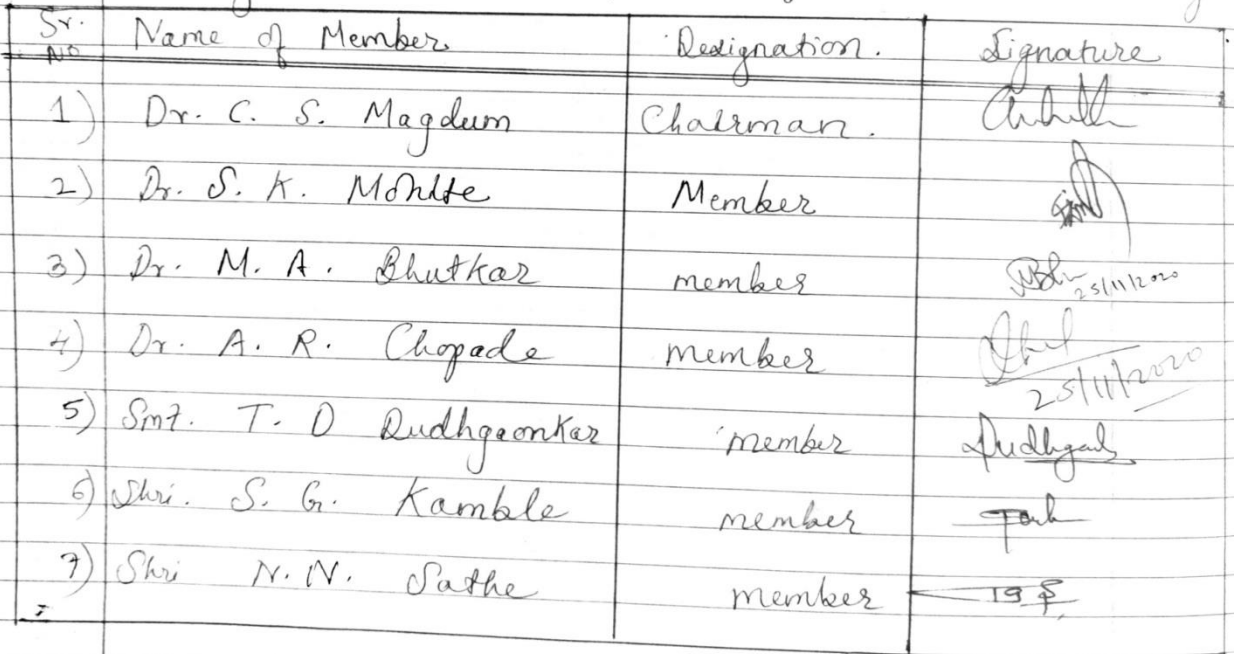 Sr. No Name of Member Designation. Signature
1) Dr. C. S. Magdum Chairman.
2) Dr. S. K. Mohite Member
3) Dr. M. A. Bhutkar member
25/11/2020
4) Dr. A. R. Chopade member
25/11/2020
5) Smt. T. D Dudhgaonkar member
6) Shri. S. G. Kamble member
7) Shri N. N. Sathe member